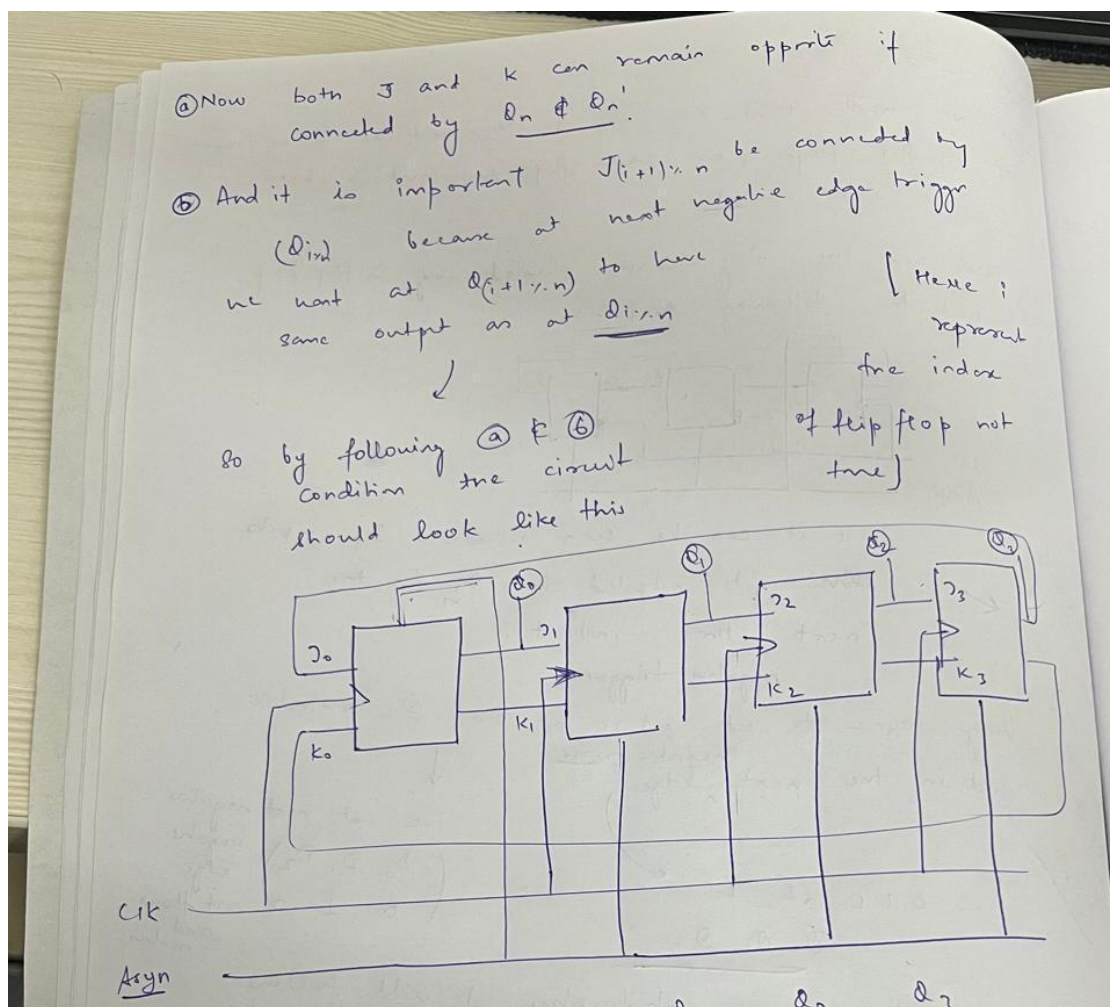 ⓐ Now both J and K can remain opposite if
connected by Qn & Qn'.
ⓑ And it is important J(i+1)%n be connected by
(Qi%n) because at next negative edge trigger
we want at Q(i+1%n) to have
same output as at Qi%n
[Here i
represent
the index
of flip flop not
time]
So by following ⓐ & ⓑ
condition the circuit
should look like this
Q0 Q1 Q2 Q3
J0 J1 J2 J3
K0 K1 K2 K3
Clk
Asyn
Q2 Q3